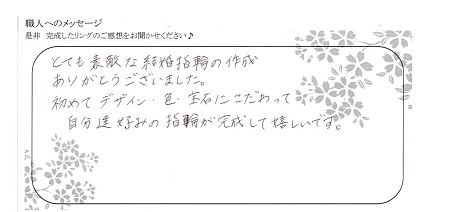 職人へのメッセージ
是非 完成したリングのご感想をお聞かせください♪
とても素敵な結婚指輪の作成
ありがとうございました。
初めてデザイン・色・宝石にこだわって
自分達好みの指輪が完成して嬉しいです。